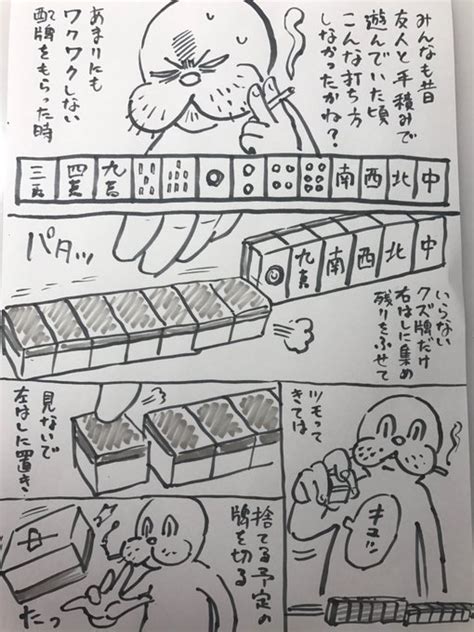 みんなも昔
友人と手積みで
遊んでいた頃
こんな打ち方
しなかったかね？
あまりにも
ワクワクしない
配牌をもらった時
三萬 四萬 九萬 南 西 北 中
パタッ
九萬 南 西 北 中
いらない
クズ牌だけ
右はしに集め
残りをふせて
ツモって
きては
見ないで
左はしに置き
捨てる予定の
牌を切る
たっ